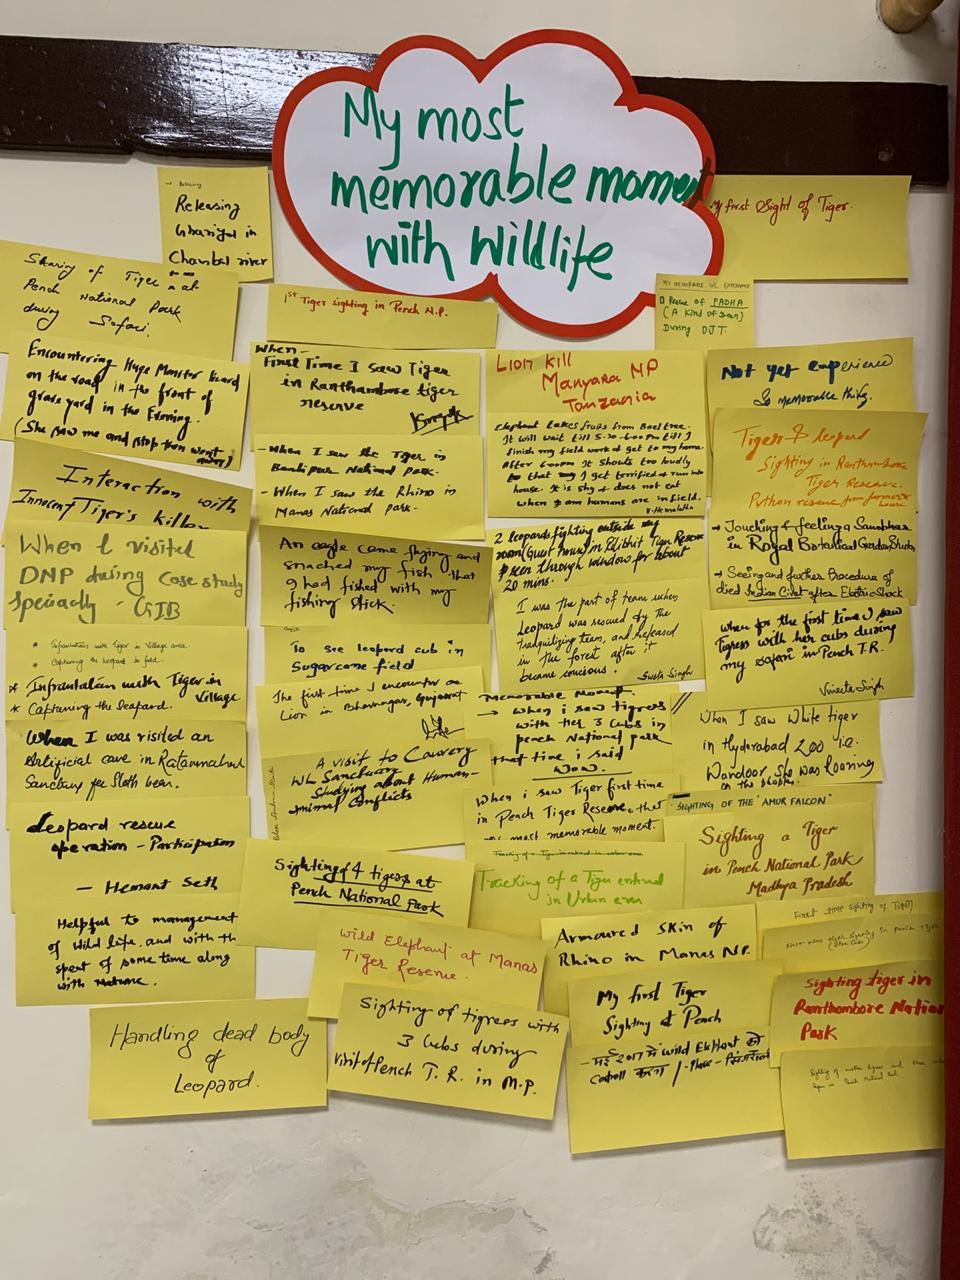 My most
memorable moment
with Wildlife
→ Releasing
Releasing
Gharial in
Chambal river
My first Sight of Tiger.
Sharing of Tiger at
Pench National Park
during Safari.
1st Tiger sighting in Pench N.P.
MY MEMORABLE WL EXPERIENCE
Rescue of PADHA
(A Kind of Deer)
During OJT.
Encountering Huge Monitor lizard
on the road in the front of
graveyard in the Evening.
(She saw me and stop then went
away)
When-
First Time I saw Tiger
in Ranthambore tiger
reserve
Lion Kill
Manyara NP
Tanzania
Not yet experience
So memorable thing.
Interaction with
Innocent Tiger's killer
- When I saw the Tiger in
Bandipur National park.
- When I saw the Rhino in
Manas National park.
Elephant takes fruits from Bael tree.
It will wait till 5-30-6.00 Pm till I
finish my field work & get to my home.
After 6.00 Pm It shouts too loudly
so that I get terrified & run into
house. It is shy & does not eat
when I am humans are in field.
V. Hemalatha
Tiger & leopard
Sighting in Ranthambore
Tiger Reserve.
Python rescue from farmer
house
When I visited
DNP during case study
specially - GIB
An eagle came flying and
snached my fish that
I had fished with my
fishing stick.
2 leopards fighting outside my
room (Guest house) in Pilibhit Tiger Reserve
seen through window for about
20 mins.
→ Touching & feeling a Sambhar
in Royal Botanical Garden
→ Seeing and further Procedure of
died Indian Civet after Electric Shock
I was the part of team when
Leopard was rescued by the
tranquilizing team, and released
in the forest after it
became concious.
Sweta Singh
When for the first time I saw
Tigress with her cubs during
my safari in Pench T.R.
Vineeta Singh
* Infrantation with Tiger in Village area
* Capturing the leopard in field.
* Infrantation with Tiger in
Village
* Capturing the leopard.
To see leopard cub in
Sugarcane field
The first time I encounter a
Lion in Bhavnagar, Gujarat
Memorable Moment.
→ When i saw tigress
with her 3 Cubs in
pench National park
that time i said
Wow.
When I saw White tiger
in Hyderabad zoo i.e.
Wandoor, she was roaring
on the people
When I was visited an
Artificial cave in Ratanmahal
Sanctury for Sloth bear.
A visit to Cauvery
WL Sanctuary
Studying about Human-
animal conflicts
When i saw Tiger first time
in Pench Tiger Reserve, that
most memorable moment.
SIGHTING OF THE "AMUR FALCON"
Sighting a Tiger
in Pench National Park
Madhya Pradesh
Leopard rescue
operation - Participation
- Hemant Seth
Sighting of 4 tigers at
Pench National Park
Tracking of a Tiger entered in urban area
Tracking of a Tiger entered
in Urban area
Helpful to management
of wild life and with the
spent of some time along
with Nature.
Wild Elephant at Manas
Tiger Reserve.
Armoured Skin of
Rhino in Manas NP.
First time sighting of Tiger.
My first Tiger
Sighting at Pench
Sighting tiger in
Ranthambore Nation
Park
Handling dead body
of
Leopard.
Sighting of tigrees with
3 Cubs during
visit of Pench T.R. in M.P.
- मई 2017 में Wild Elephant को
Sighting of mother tigress and